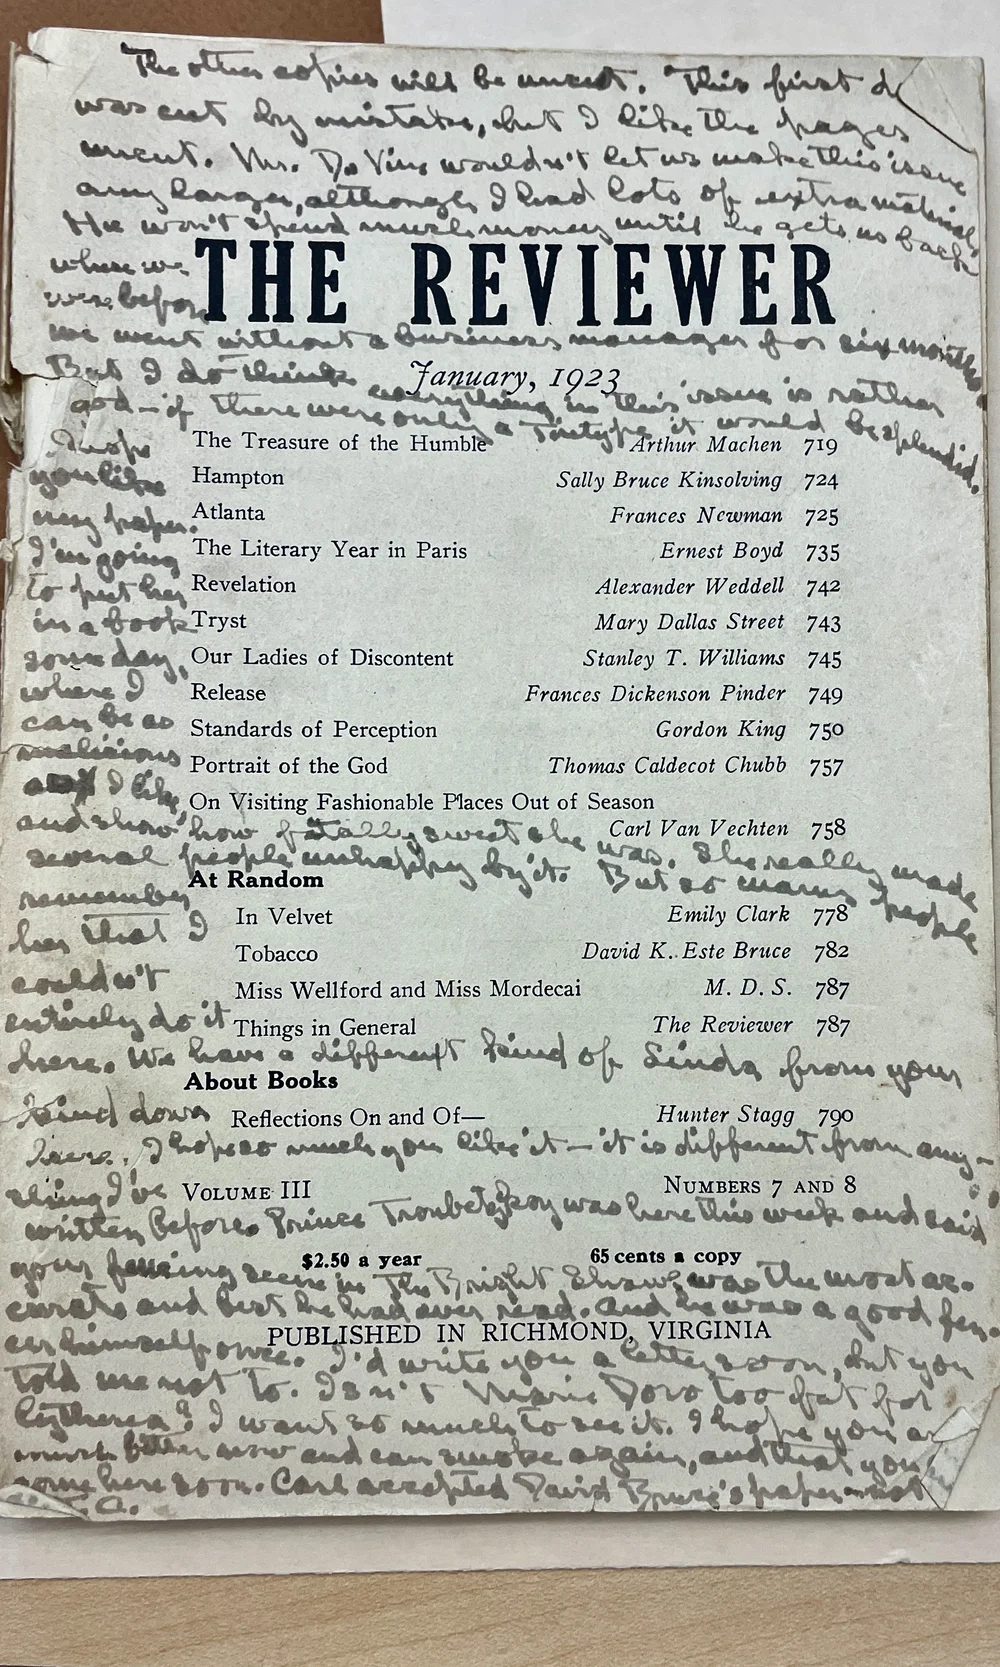 The other copies will be uncut. This first
was cut by mistake, but I like the pages
uncut. Mr. De Vine wouldn't let us make this issue
any larger, although I had lots of extra material.
He won't spend much money until he gets us back
where we
THE REVIEWER
were before
we went without a business manager for six months.
But I do think everything in this issue is rather
January, 1923
good — if there were only a Tintype it would be splendid.
The Treasure of the Humble Arthur Machen 719
I hope
Hampton Sally Bruce Kinsolving 724
you like
Atlanta Frances Newman 725
my paper.
The Literary Year in Paris Ernest Boyd 735
I'm going
Revelation Alexander Weddell 742
to put her
Tryst Mary Dallas Street 743
in a book
Our Ladies of Discontent Stanley T. Williams 745
some day,
Release Frances Dickenson Pinder 749
where I
can be as
Standards of Perception Gordon King 750
malicious
Portrait of the God Thomas Caldecot Chubb 757
as I like,
On Visiting Fashionable Places Out of Season
Carl Van Vechten 758
and show how fatally sweet she was. She really made
several people unhappy by it. But so many people
At Random
remember
In Velvet Emily Clark 778
her that I
Tobacco David K. Este Bruce 782
couldn't
Miss Wellford and Miss Mordecai M. D. S. 787
entirely do it
Things in General The Reviewer 787
here. We have a different kind of Linda from your
About Books
kind down
Reflections On and Of— Hunter Stagg 790
here. I hope so much you like it — it is different from any-
thing I've
VOLUME III NUMBERS 7 AND 8
written before. Prince Troubetzkoy was here this week and said
$2.50 a year 65 cents a copy
your fencing scene in The Bright Shawl was the most ac-
curate and best he had ever read. And he was a good fen-
PUBLISHED IN RICHMOND, VIRGINIA
cer himself once. I'd write you a letter soon, but you
told me not to. Isn't Marie Doro too fat for
Cytherea? I want so much to see it. I hope you are
much better now and can smoke again, and that you'll
come here soon. Carl accepted David Bruce's paper — not